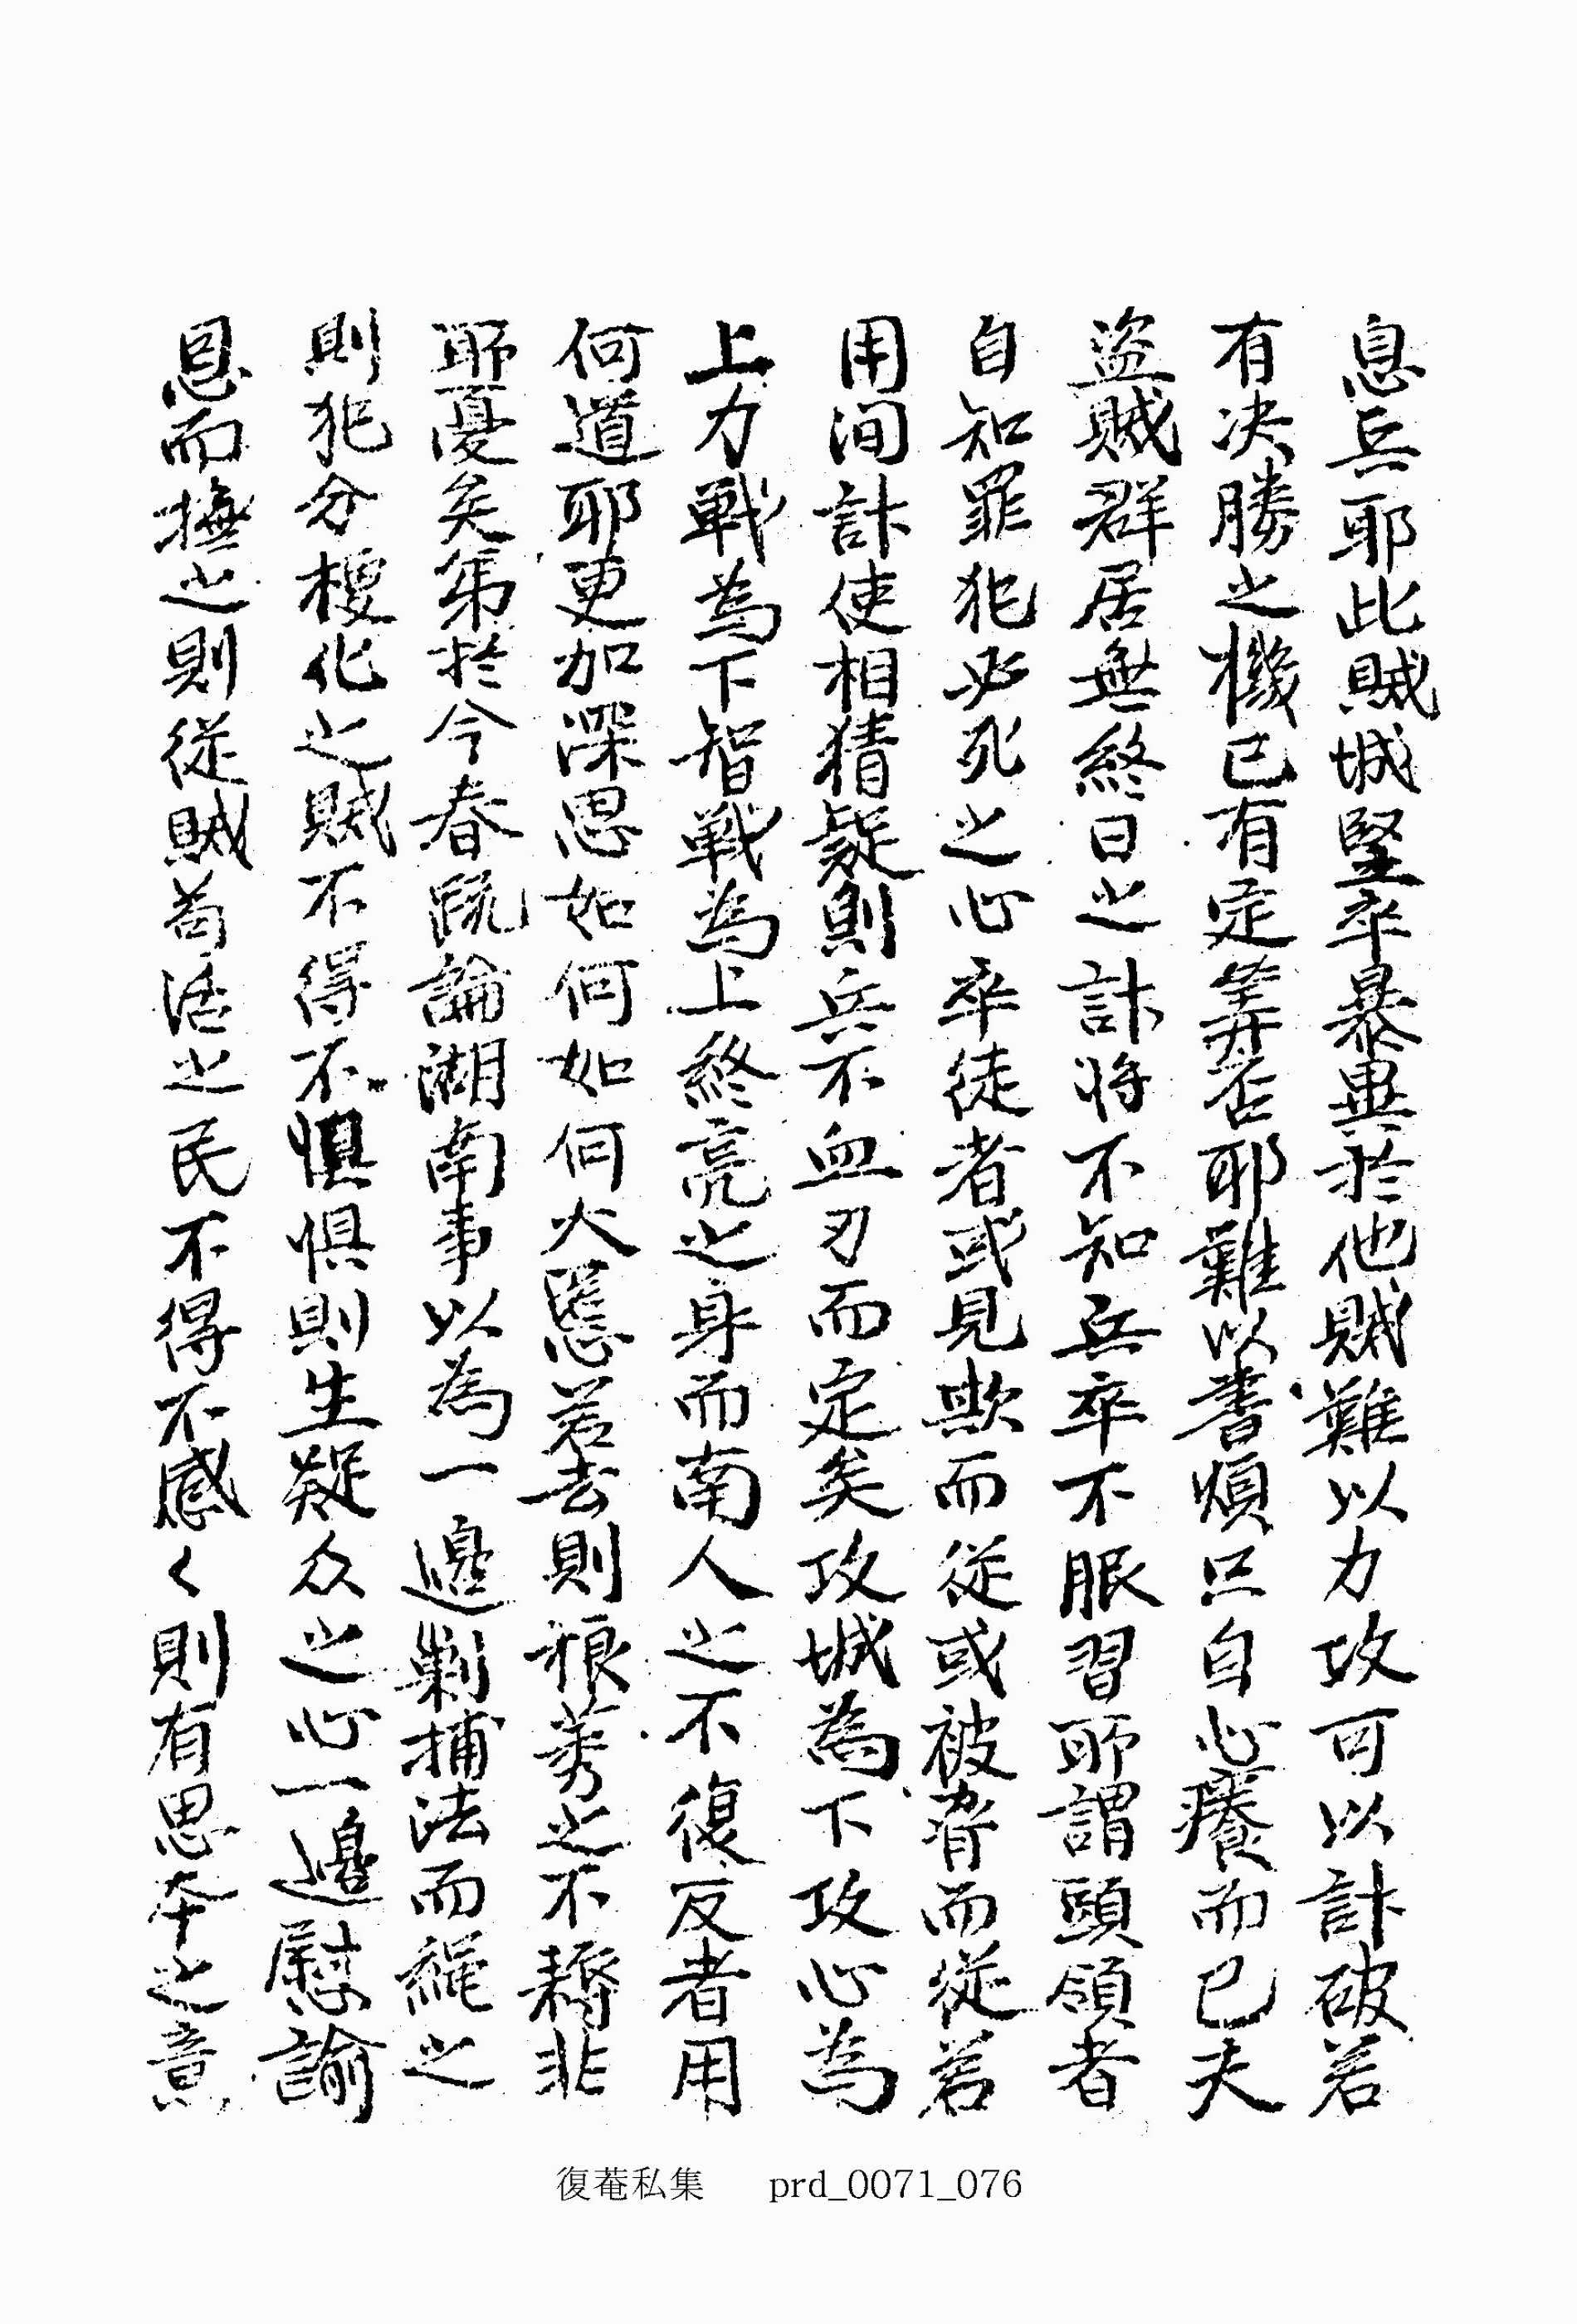 息兵耶此賊城堅卒暴異於他賊難以力攻可以計破若
有决勝之機已有定筭否耶難以書煩只自心癢而已夫
盜賊群居無終日之計將不知兵卒不服習所謂頭領者
自知罪犯必死之心卒徒者或見欺而從或被脅而從若
用间計使相猜疑則兵不血刃而定矣攻城為下攻心為
上力戰為下智戰為上終亮之身而南人之不復反者用
何道耶更加深思如何如何大慝若去則稂莠之不耨非
耶憂矣第於今春疏論湖南事以為一邊剿捕法而繩之
則犯分梗化之賊不得不惧惧則生疑众之心一邊慰諭
恩而撫之則從賊苟活之民不得不感〻則有思本之意
復菴私集 prd_0071_076